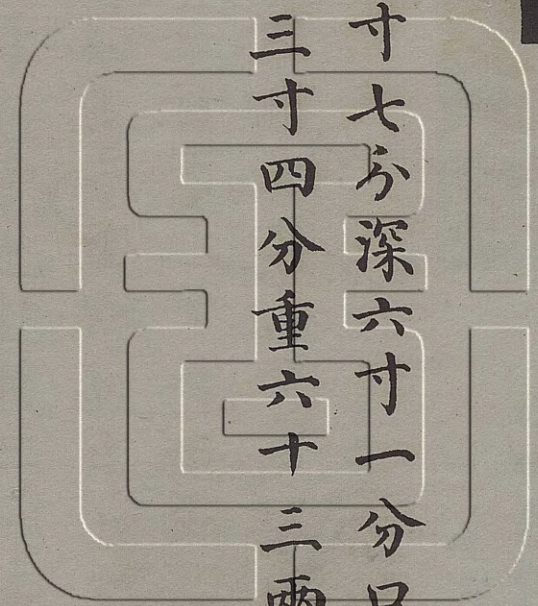 寸七分深六寸一分口
三寸四分重六十三兩